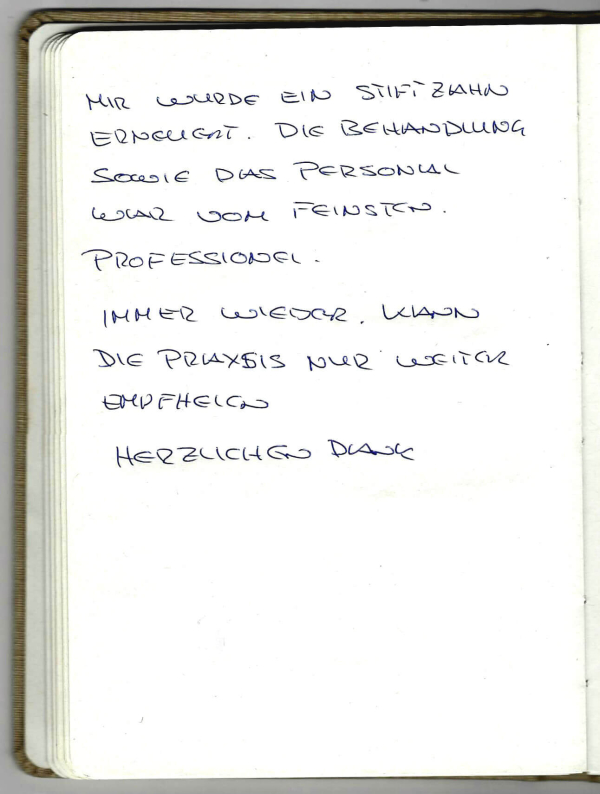 MIR WURDE EIN STIFTZAHN
ERNEUERT. DIE BEHANDLUNG
SOWIE DAS PERSONAL
WAR VOM FEINSTEN.
PROFESSIONEL.
IMMER WIEDER. KANN
DIE PRAXSIS NUR WEITER
EMPFHELEN
HERZLICHEN DANK